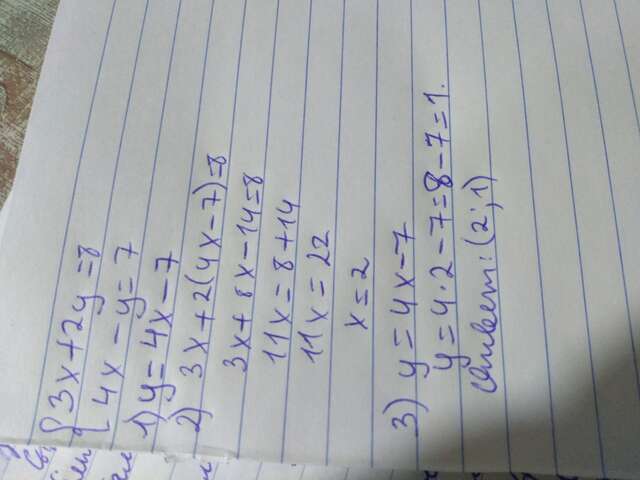 {3x+2y=8
4x-y=7
1) y=4x-7
2) 3x+2(4x-7)=8
3x+8x-14=8
11x=8+14
11x=22
x=2
3) y=4x-7
y=4·2-7=8-7=1.
Ответ: (2;1)